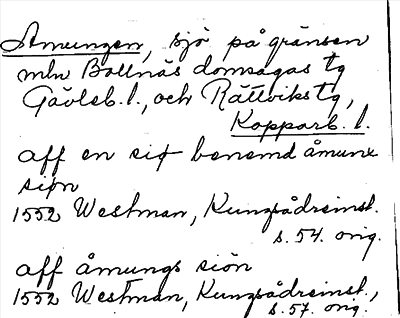 Amungen, sjö på gränsen
mln Bollnäs domsagas tg
Gävleb. l., och Rättviks tg,
Kopparb. l.
aff en siø benemd åmunx
siøn
1552 Westman, Kungsådreinst.
s. 54. orig.
aff åmungs siön
1552 Westman, Kungsådreinst.,
s. 57. orig.